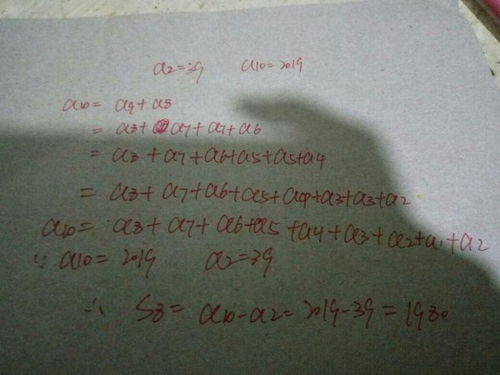 a2=39 a10=2019
a10= a9+a8
= a8+a7+a7+a6
= a8+a7+a6+a5+a5+a4
= a8+a7+a6+a5+a4+a3+a3+a2
a10= a8+a7+a6+a5+a4+a3+a2+a1+a2
∵ a10=2019 a2=39
∴ S8= a10-a2=2019-39=1980